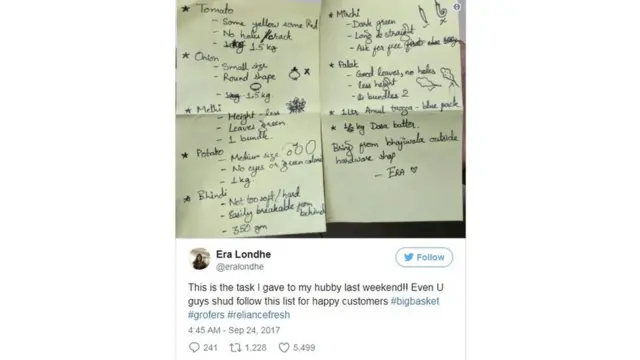 ★ Tomato
- Some yellow some Red
- No holes/crack
- 1.5 kg
★ Onion
- Small size
- Round shape
- 1.5 kg
★ Methi
- Height - less
- Leaves green
- 1 bundle
★ Potato
- Medium size
- No eyes or green colour
- 1 kg
★ Bhindi
- Not too soft/hard
- Easily breakable from behind
- 350 gm
★ Mirchi
- Dark green
- Long & straight
- Ask for free
★ Palak
- Good leaves, no holes
- less height
- bundles 2
★ 1 Ltr Amul - blue pack
★ kg Dosa batter.
Bring from bhajiwala outside
hardware shop
- ERA ♡
Era Londhe
@eralondhe
Follow
This is the task I gave to my hubby last weekend!! Even U
guys shud follow this list for happy customers #bigbasket
#grofers #reliancefresh
4:45 AM - Sep 24, 2017
241 1,228 5,499